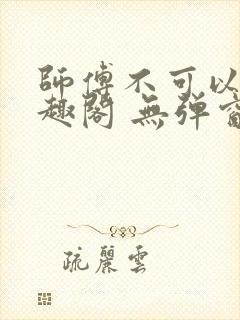 師傅不可以
趣閣 無彈窗
疏麗雲